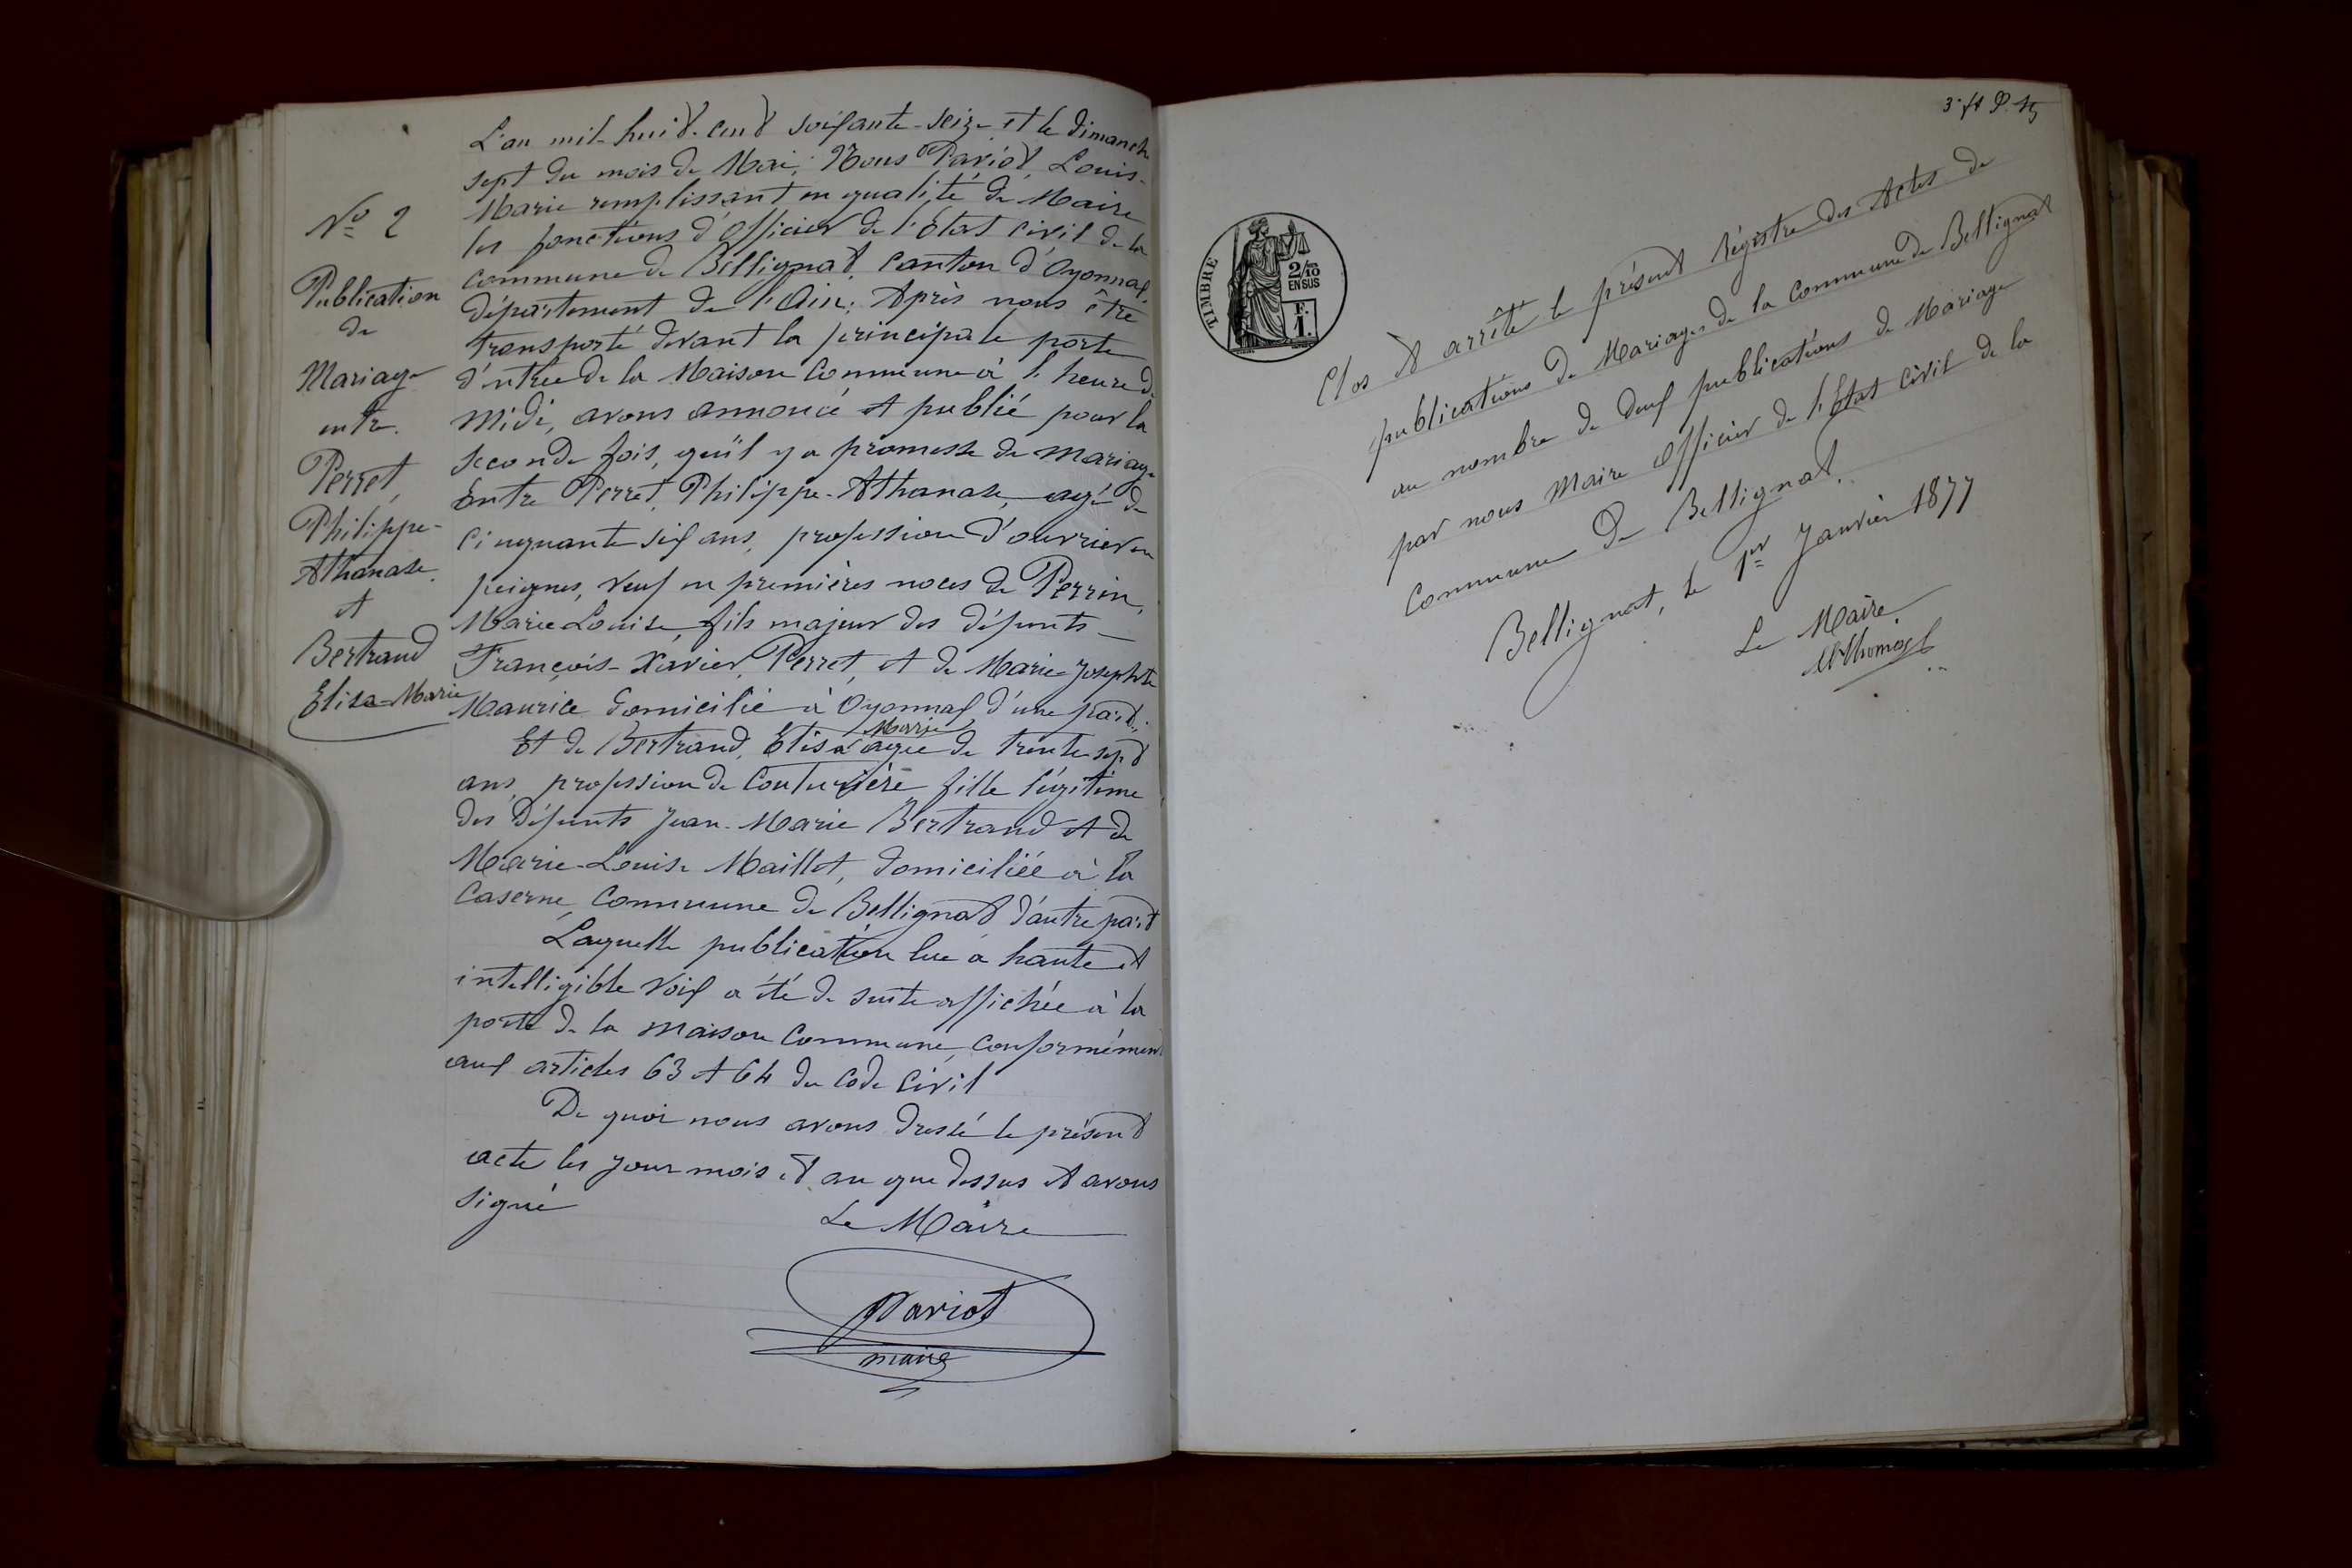 N° 2
Publication
de
Mariage
entre
Perret,
Philippe-
Athanase.
et
Bertrand
Elisa-Marie
L'an mil-huit-cent soixante-seize et le dimanche
sept du mois de Mai; Nous Pariot, Louis-
Marie remplissant en qualité de Maire
les fonctions d'Officier de l'État civil de la
commune de Bellignat, canton d'Oyonnax,
département de l'Ain; Après nous être
transporté devant la principale porte
d'entrée de la Maison Commune à l'heure de
Midi, avons annoncé et publié pour la
seconde fois, qu'il y a promesse de mariage
Entre Perret, Philippe-Athanase, agé de
cinquante six ans, profession d'ouvrier en
peignes, veuf en premières noces de Perrin,
Marie Louise, fils majeur des défunts
François-Xavier, Perret, et de Marie-Josephte
Maurice domicilié à Oyonnax d'une part;
Marie
Et de Bertrand, Elisa agée de trente sept
ans, profession de Couturière fille légitime
des Défunts Jean-Marie Bertrand et de
Marie-Louise Maillot, domiciliée à la
Caserne, Commune de Bellignat d'autre part
Laquelle publication lue à haute et
intelligible voix a été de suite affichée à la
porte de la maison Commune, conformément
aux articles 63 et 64 du code civil
De quoi nous avons dressé le présent
acte les jour mois et an que dessus et avons
signé
Le Maire
Pariot
maire
TIMBRE
2/10
EN SUS
F.
1.
Clos et arrêté le présent Régistre des Actes de
publications de Mariages de la commune de Bellignat
au nombre de deux publications de Mariage
par nous Maire Officier de l'État Civil de la
Commune de Bellignat.
Bellignat, le 1er Janvier 1877
Le Maire